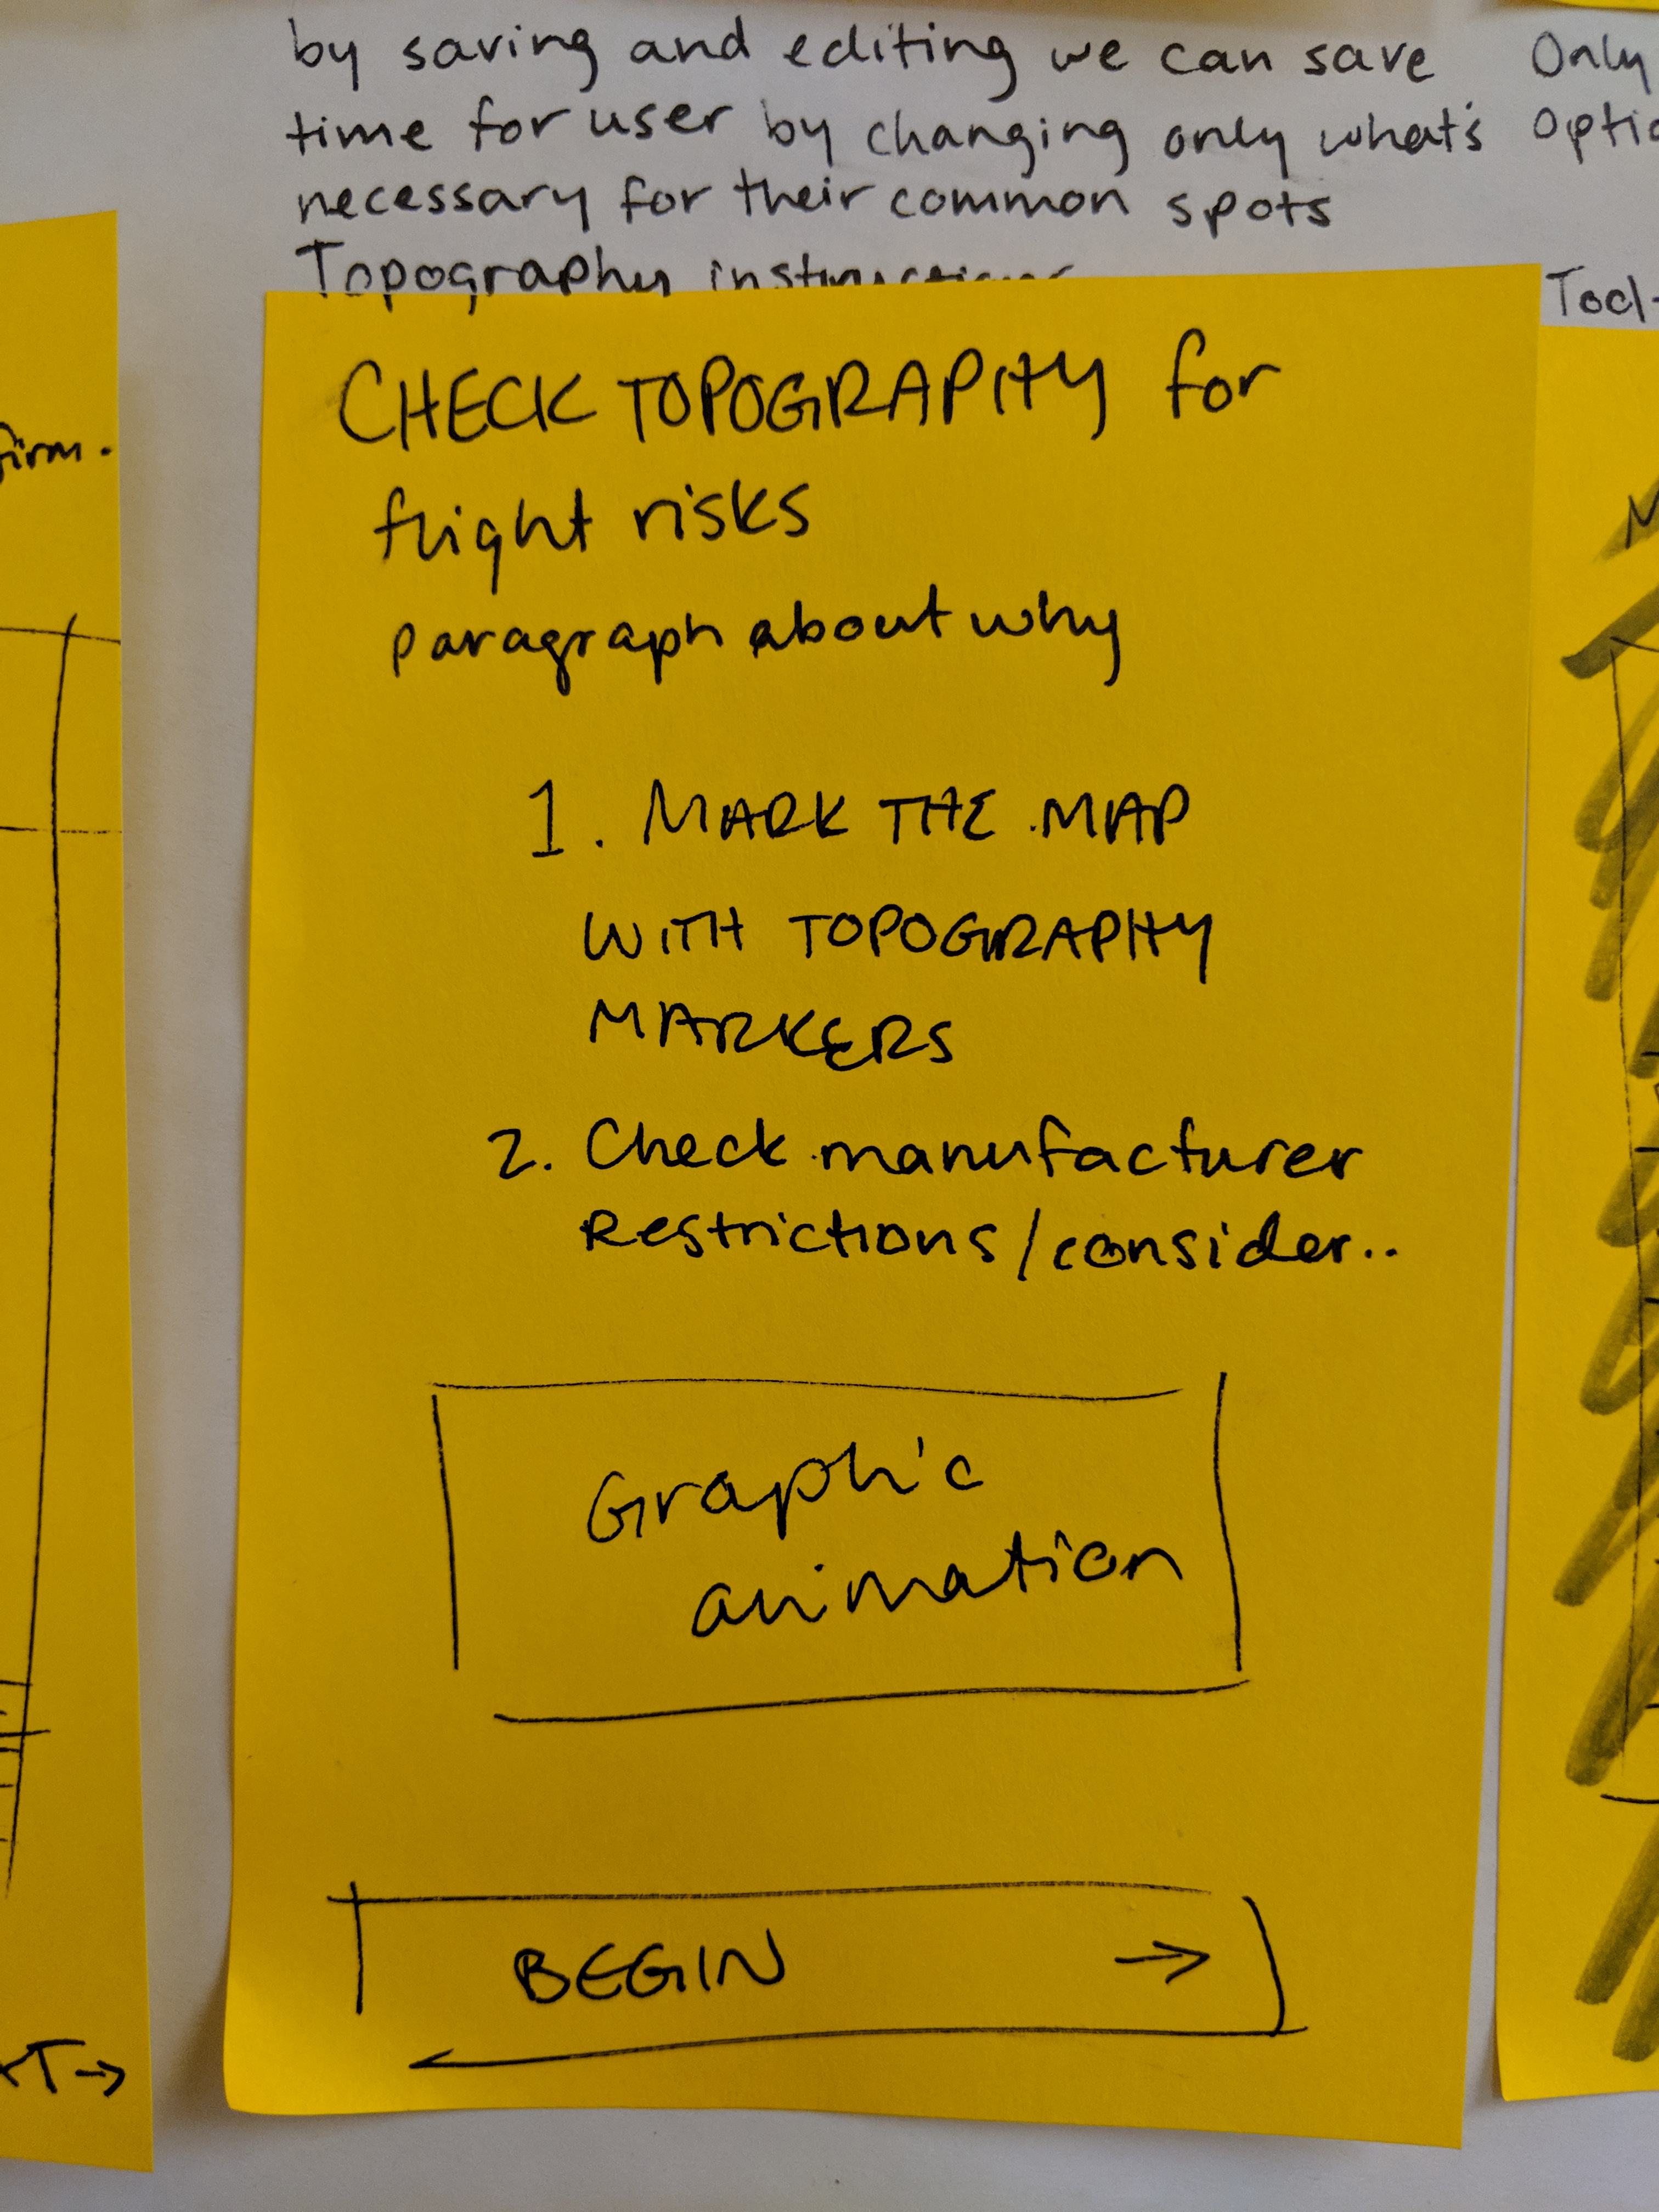 by saving and editing we can save
time for user by changing only what's
necessary for their common spots
Topography instructions
Only
Tool-
firm.
CHECK TOPOGRAPHY for
flight risks
paragraph about why
1. MARK THE MAP
WITH TOPOGRAPHY
MARKERS
2. Check manufacturer
Restrictions/consider..
Graphic
animation
BEGIN →
XT →